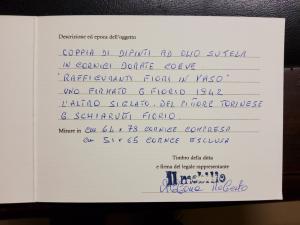 Descrizione ed epoca dell'oggetto
COPPIA DI DIPINTI AD OLIO SU TELA
IN CORNICI DORATE COEVE
"RAFFIGURANTI FIORI IN VASO"
UNO FIRMATO G FIORIO 1942
L'ALTRO SIGLATO. DEL PITTORE TORINESE
G SCHIARUTTI FIORIO.
Misure in cm 64 x 78 CORNICE COMPRESA
cm 51 x 65 CORNICE ESCLUSA
Timbro della ditta
e firma del legale rappresentante
Il mobilio
Roberto